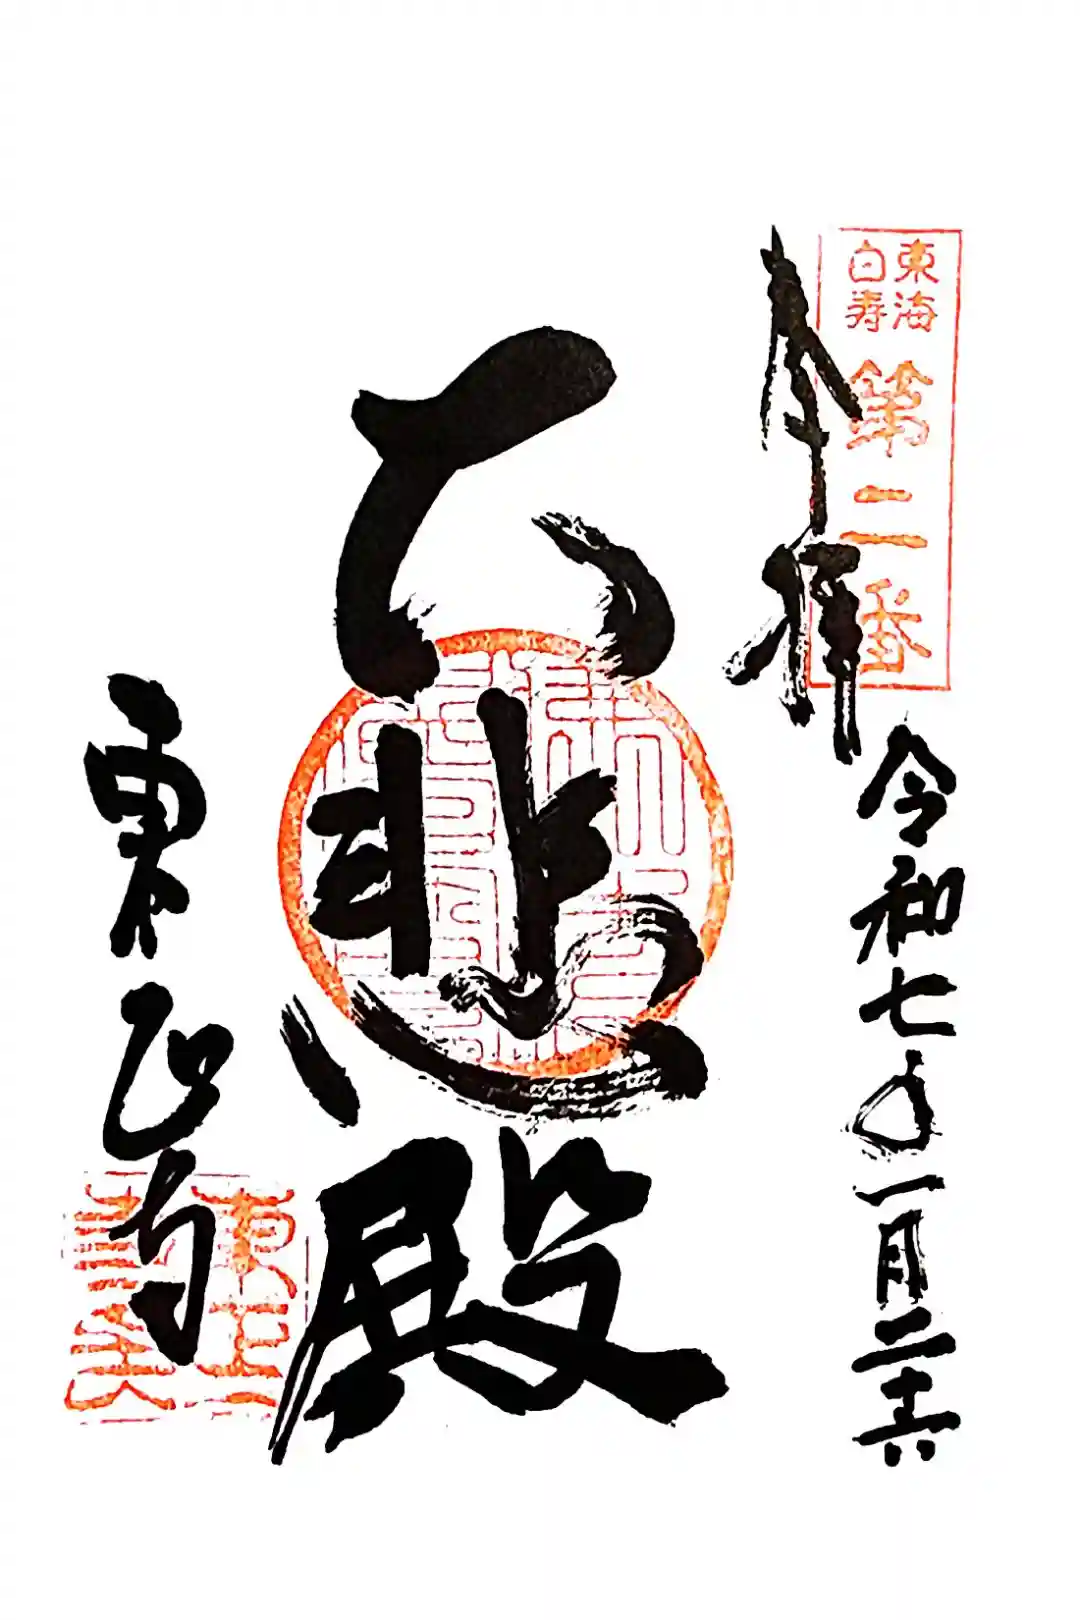 東海
白寿
第二番
奉拝
令和七年一月二十六
大悲殿
東正寺